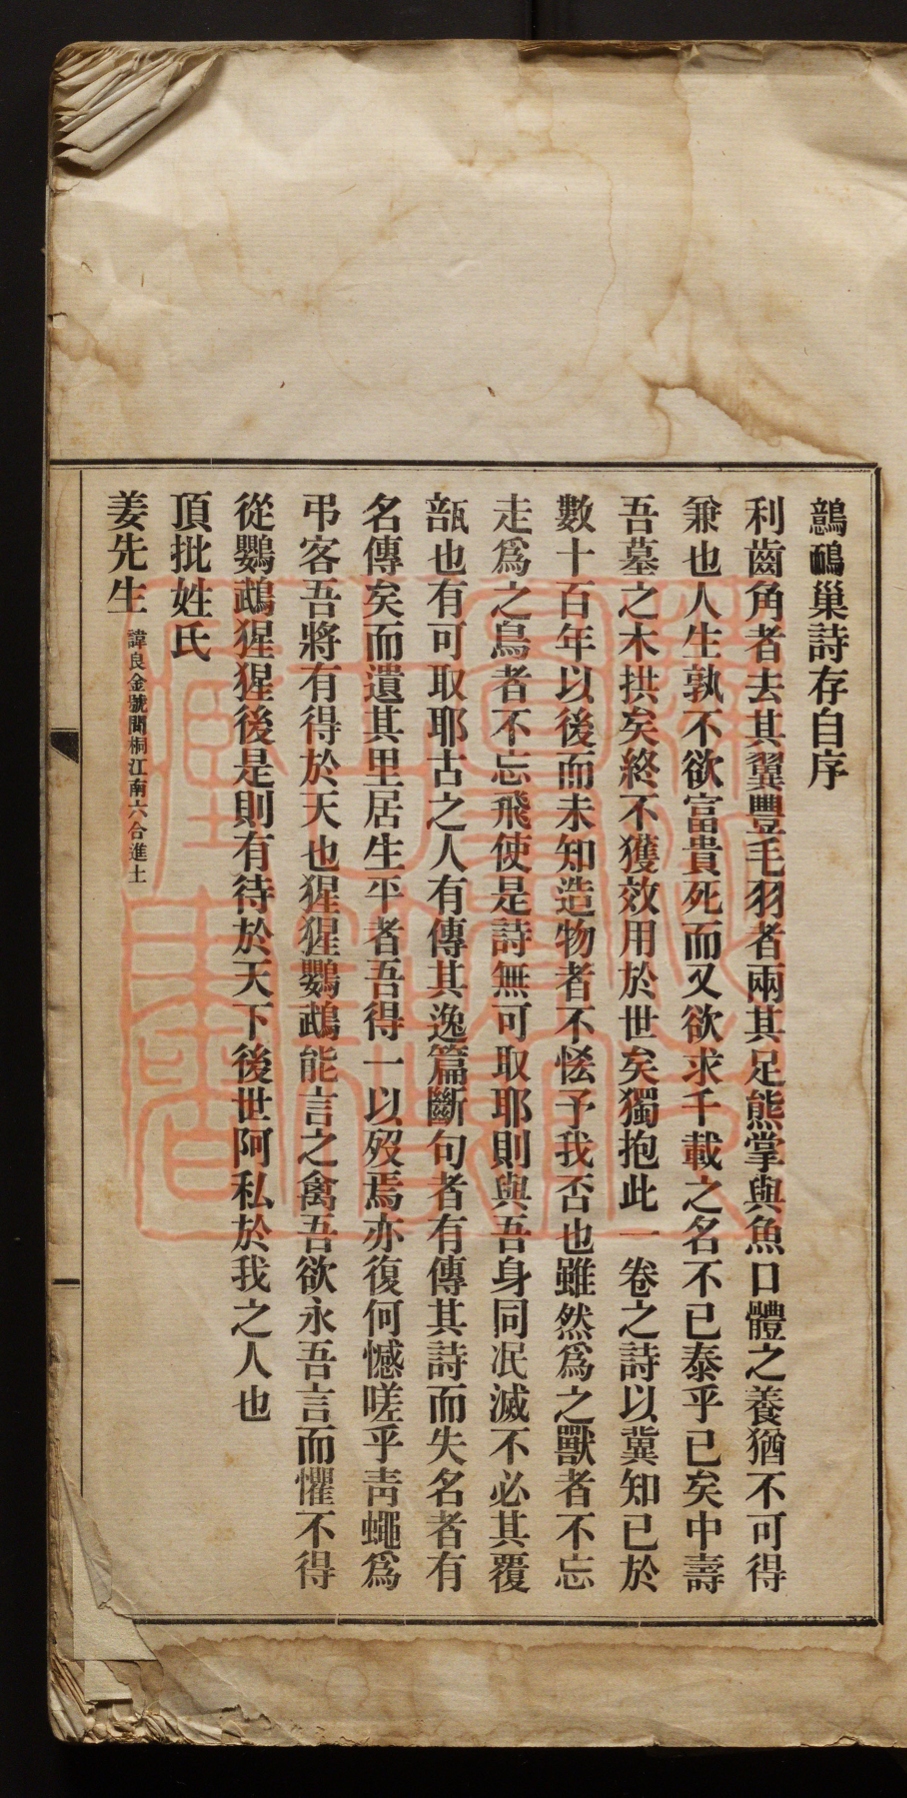 鷾鴯巢詩存自序
利齒角者去其翼豐毛羽者兩其足熊掌與魚口體之養猶不可得
兼也人生孰不欲富貴死而又欲求千載之名不已泰乎已矣中壽
吾墓之木拱矣終不獲效用於世矣獨抱此一卷之詩以冀知已於
數十百年以後而未知造物者不恡予我否也雖然爲之獸者不忘
走爲之鳥者不忘飛使是詩無可取耶則與吾身同冺滅不必其覆
瓿也有可取耶古之人有傳其逸篇斷句者有傳其詩而失名者有
名傳矣而遺其里居生平者吾得一以歿焉亦復何憾嗟乎靑蠅爲
弔客吾將有得於天也猩猩鸚鵡能言之禽吾欲永吾言而懼不得
從鸚鵡猩猩後是則有待於天下後世阿私於我之人也
頂批姓氏
姜先生 諱良金號閬桐江南六合進士